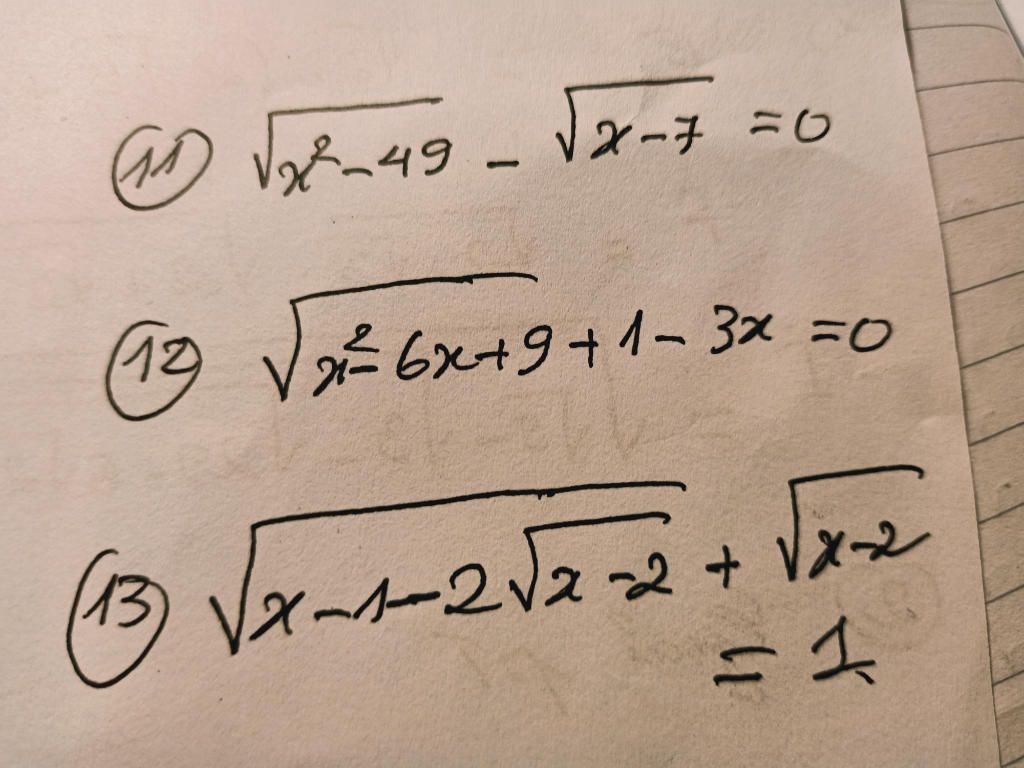 ⑪ √(x² - 49) - √(x - 7) = 0
⑫ √(x² - 6x + 9) + 1 - 3x = 0
⑬ √(x - 1 - 2√(x - 2)) + √(x - 2)
= 1